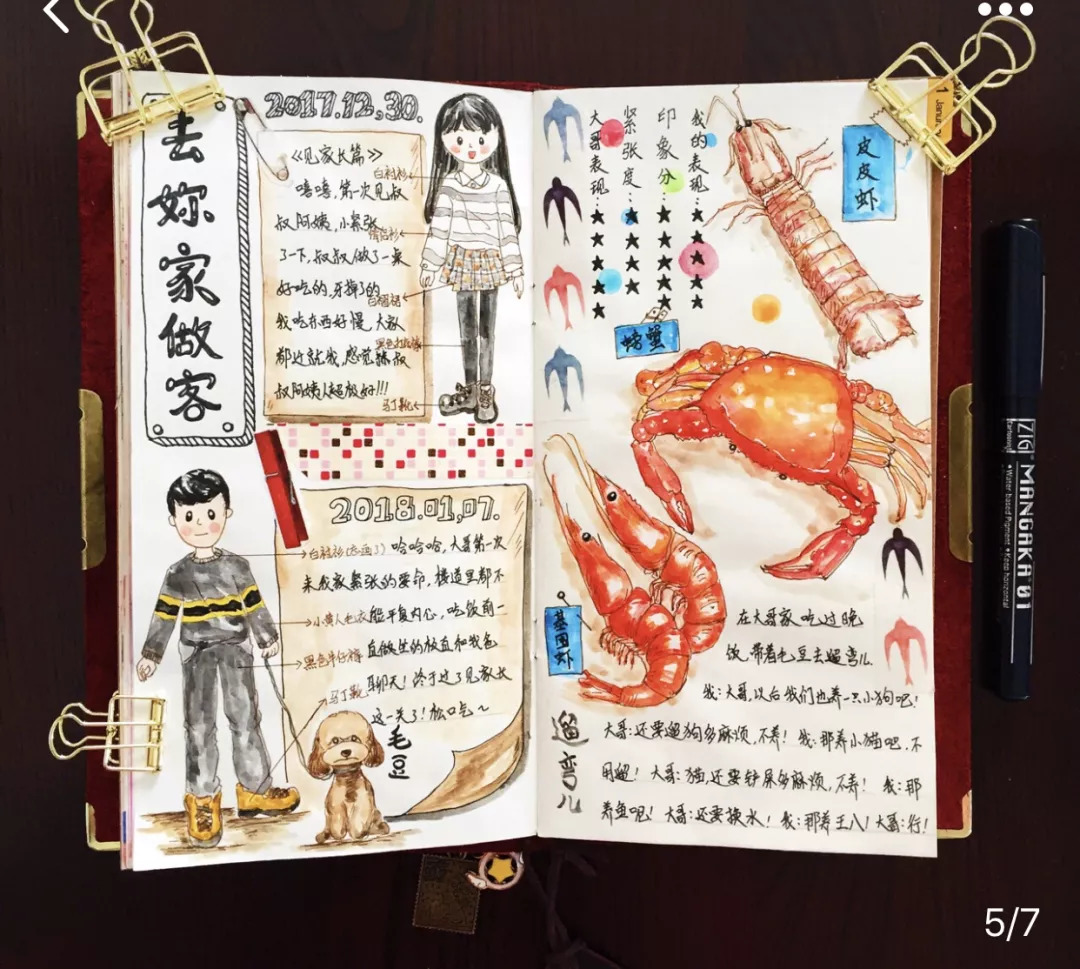 去妳家做客
2017.12.30.
《见家长篇》
嘻嘻,第一次见叔
叔阿姨,小紧张
了一下,叔叔做了一桌
好吃的,牙掉了的
我吃东西好慢,大家
都迁就我,感觉
叔阿姨人超级好!!!
白衬衫
百褶裙
马丁靴
2018.01.07.
哈哈哈,大哥第一次
来我家紧张的要命,楼道里都不
能平复内心,吃饭前一
直做坐的板直和我爸
聊天!终于过了见家长
这一关了!松口气~
白衬衫(忘画了)
小黄人毛衣
黑色牛仔裤
马丁靴
毛豆
大哥表现:★★★★★
紧张度:★★★★
印象分:★★★★★
我的表现:★★★★★
1 January
皮皮虾
螃蟹
基围虾
遛弯儿
在大哥家吃过晚
饭,带着毛豆去遛弯儿
我:大哥,以后我们也养一只小狗吧!
大哥:还要遛狗多麻烦,不养! 我:那养小猫吧,不
用遛! 大哥:猫,还要铲屎多麻烦,不养! 我:那
养鱼吧! 大哥:还要换水! 我:那养王八!大哥:行!
ZIG MANGAKA 01
Cartoonist
Water based Pigment • Keep horizontal
5/7